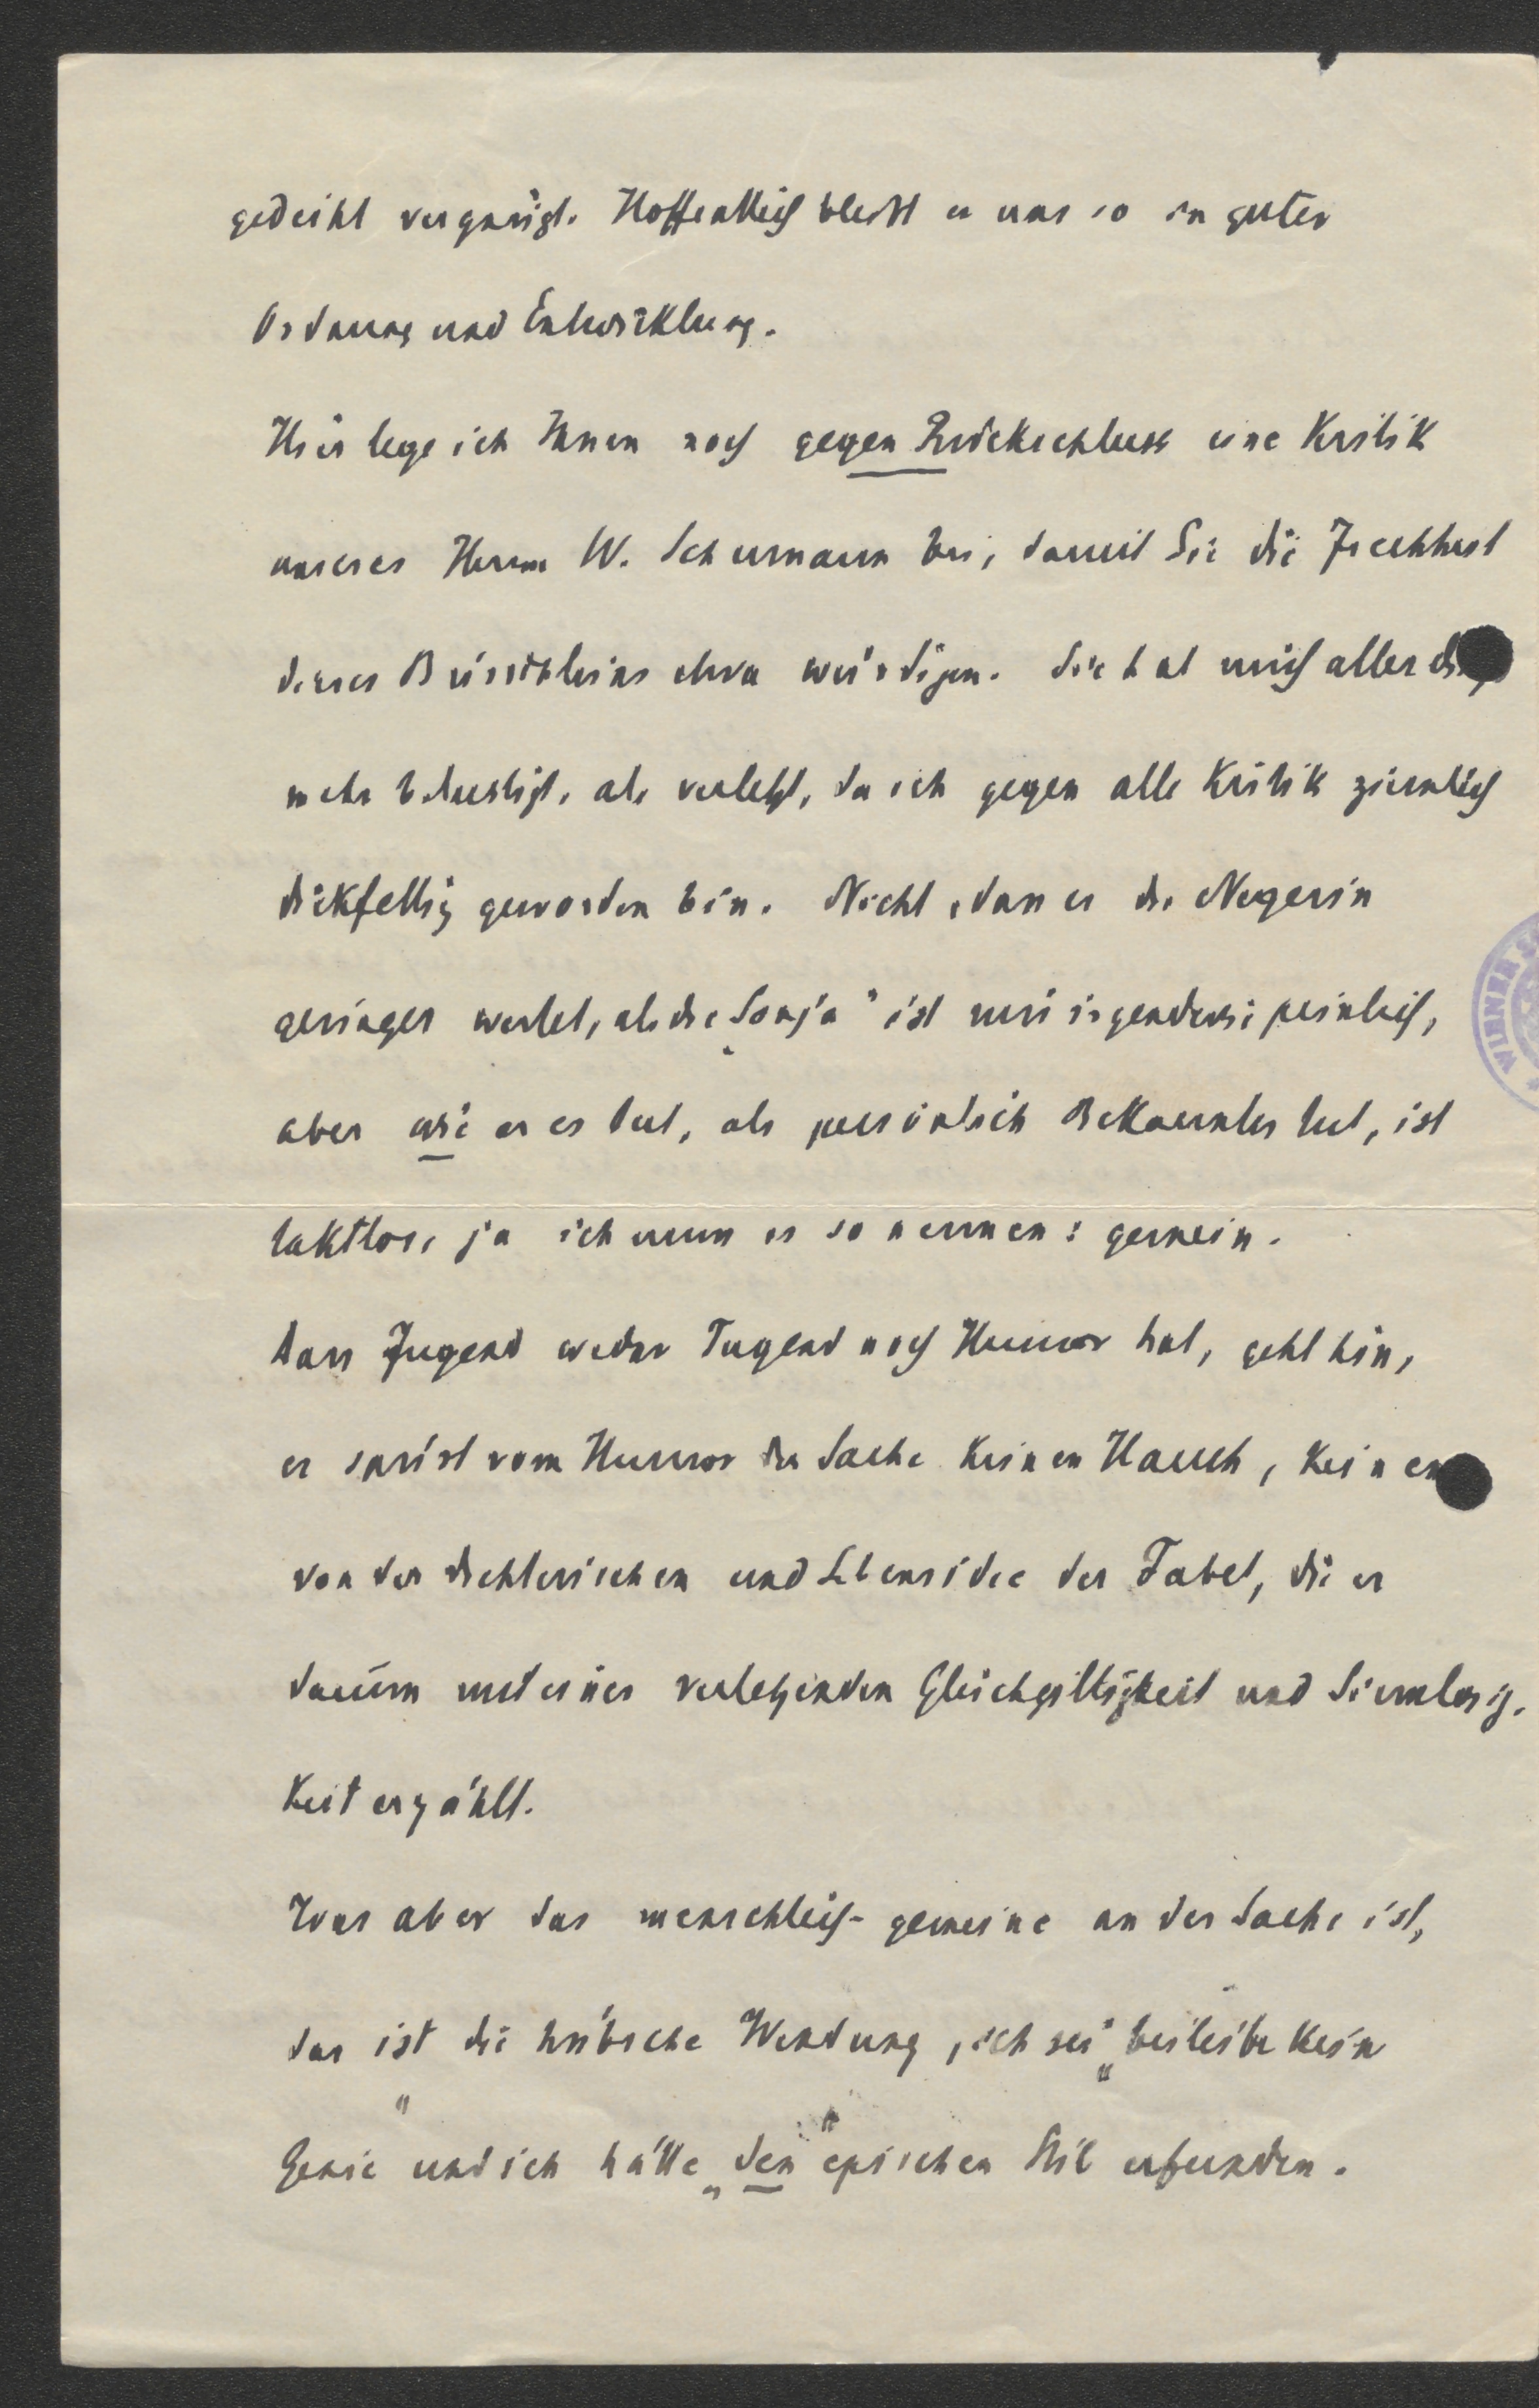 gedeiht vergnügt. Hoffentlich bleibt er uns so in guter
Ordnung und Entwicklung.
Hier lege ich Ihnen noch gegen Rückschluss eine Kritik
unseres Herrn W. Schumann bei, damit Sie die Frechheit
dieses Bürschleins etwa würdigen. Sie hat mich allerdings
mehr belustigt, als verletzt, da ich gegen alle Kritik ziemlich
dickfellig geworden bin. Nicht, dass er die Negerin
geringer wertet, als die „Sonja" ist mir irgendwie peinlich,
aber wie er es tut, als persönlich Bekannter tut, ist
taktlos, ja ich muss es so nennen: gemein.
Dass Jugend weder Tugend noch Humor hat, geht hin,
er spürt vom Humor der Sache keinen Hauch, keinen
von der dichterischen und Lebensidee der Fabel, die er
darum mit einer verletzenden Gleichgiltigkeit und Sinnlosig-
keit erzählt.
Was aber das menschlich-gemeine an der Sache ist,
das ist die hübsche Wendung, ich sei „beileibe kein
Genie" und ich hätte „den" epischen Stil erfunden.
WIENER S